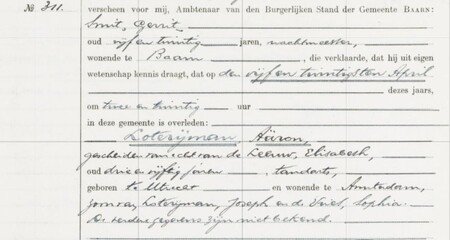 № 311.
verscheen voor mij, Ambtenaar van den Burgerlijken Stand der Gemeente BAARN:
Smit, Gerrit,
oud vijf en twintig jaren, wachtmeester,
wonende te Baarn, die verklaarde, dat hij uit eigen
wetenschap kennis draagt, dat op den vijf en twintigsten April
dezes jaars,
om twee en twintig uur
in deze gemeente is overleden:
Loterijman Aäron,
gescheiden van echt van de Leeuw, Elisabeth,
oud drie en vijftig jaren, tandarts,
geboren te Utrecht en wonende te Amsterdam,
zoon van Loterijman, Joseph en de Vries, Sophia.
De verdere gegevens zijn niet bekend.